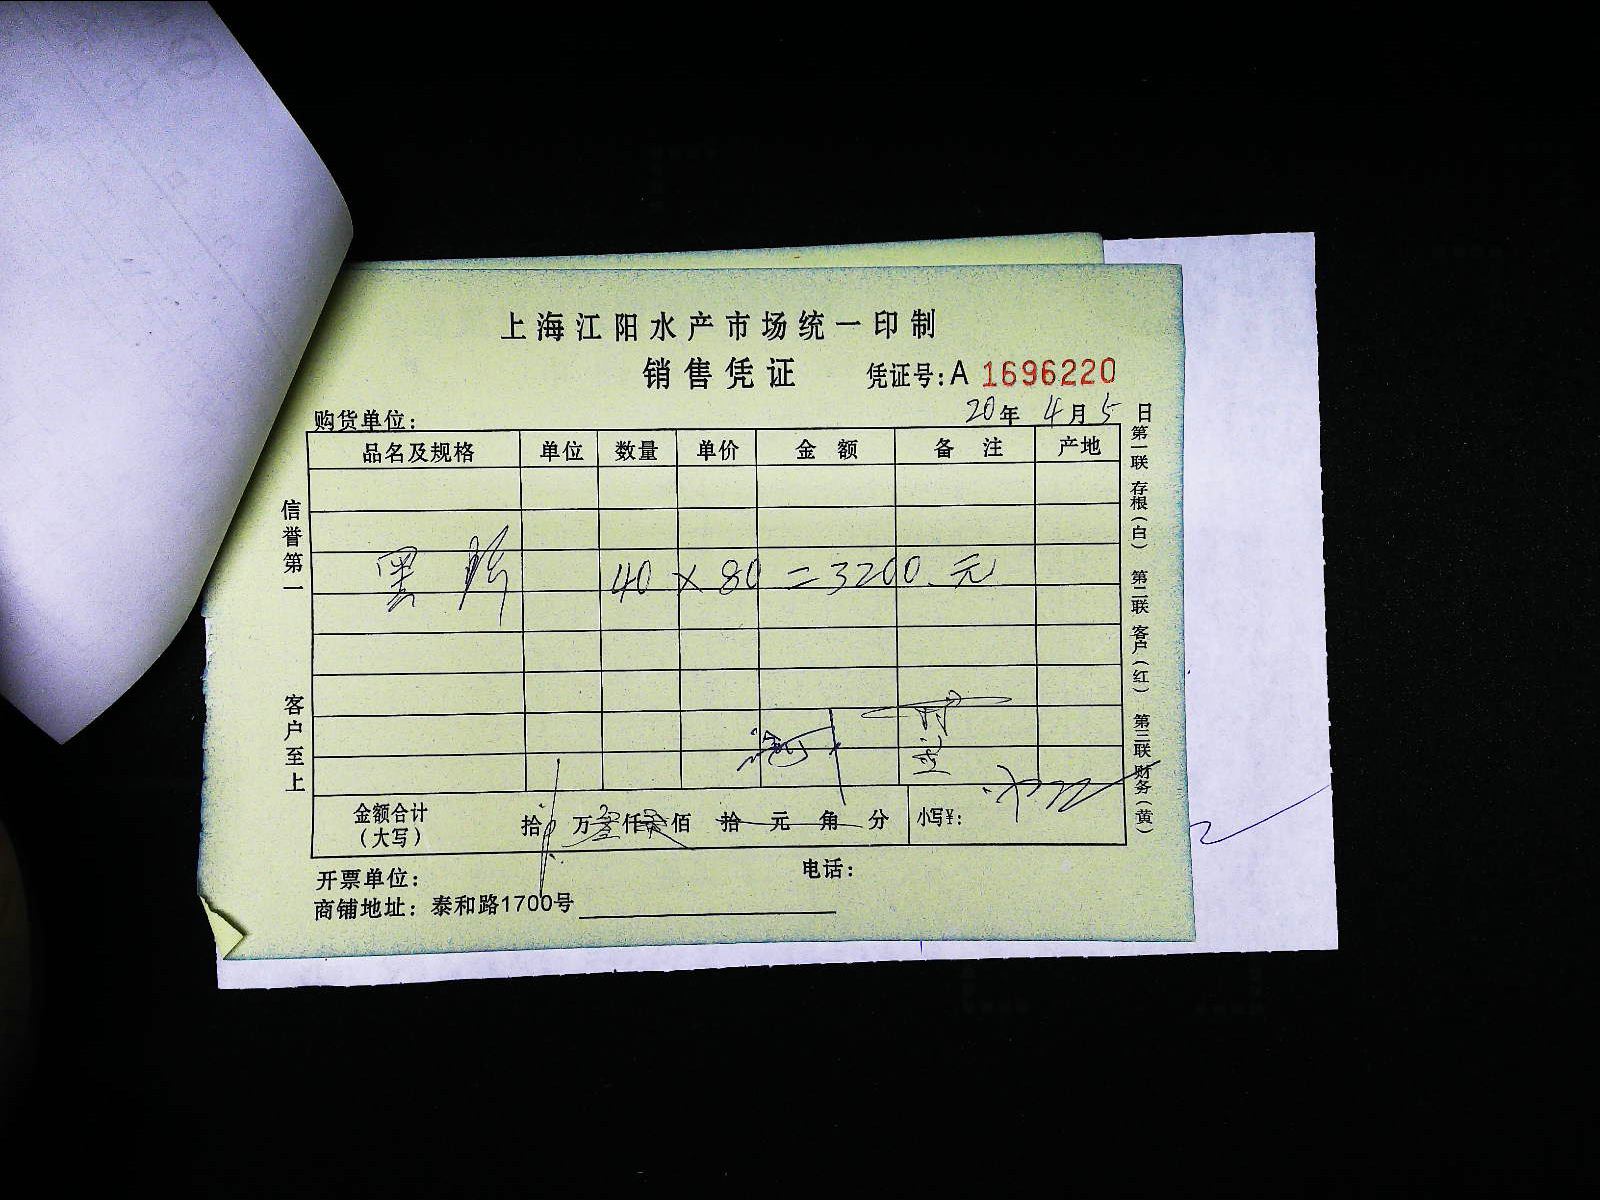 上海江阳水产市场统一印制
销售凭证 凭证号:A 1696220
购货单位: 20年 4月5日
品名及规格 单位 数量 单价 金额 备注 产地
黑 40 × 80 = 3200.元
金额合计(大写) 拾 万叁仟贰佰 拾 元 角 分 小写¥:
开票单位: 电话:
商铺地址: 泰和路1700号
信誉第一
客户至上
第一联 存根(白) 第二联 客户(红) 第三联 财务(黄)